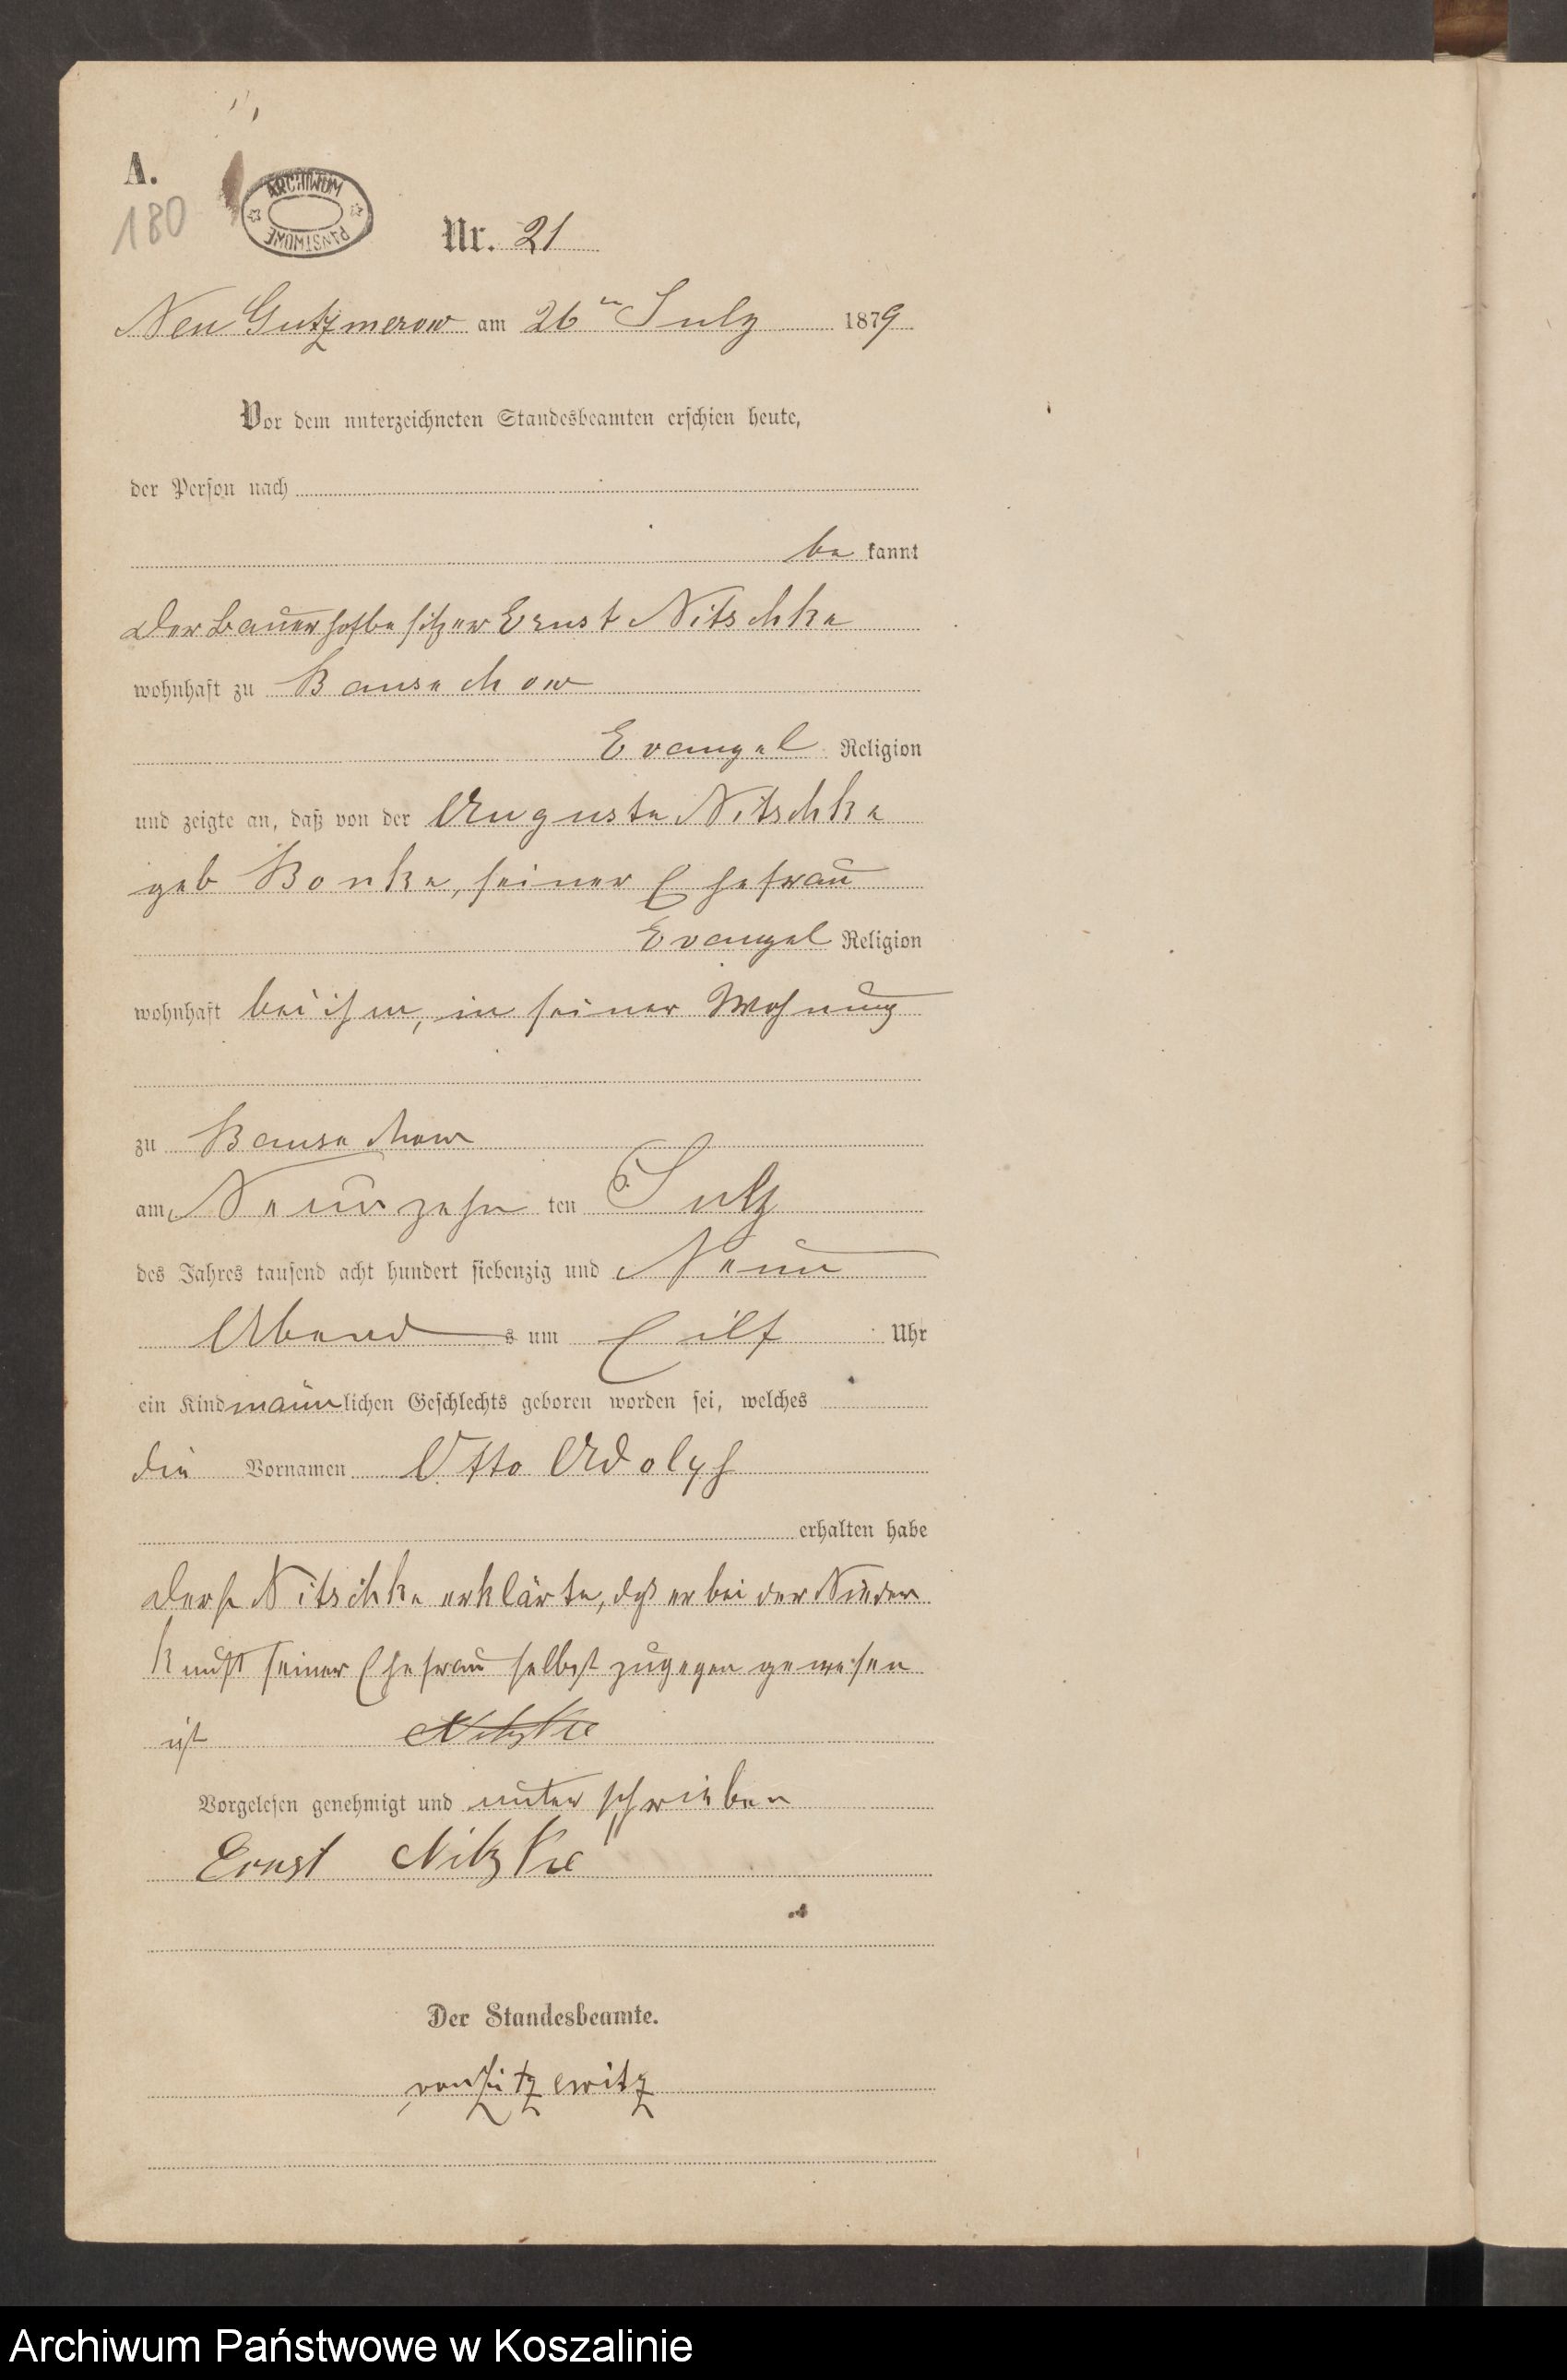 A.
180
ARCHIWUM
PAŃSTWOWE
Nr. 21
Neu Gutzmerow am 26ten July 1879
Vor dem unterzeichneten Standesbeamten erschien heute,
der Person nach
be kannt
Der Bauerhofbesitzer Ernst Nitschke
wohnhaft zu Banseckow
Evangel Religion
und zeigte an, daß von der Auguste Nitschke
geb Bonke, seiner Ehefrau
Evangel Religion
wohnhaft bei ihm, in seiner Wohnung
zu Banseckow
am Neunzehn ten July
des Jahres tausend acht hundert siebenzig und Neun
Abend s um Eilf Uhr
ein Kind männlichen Geschlechts geboren worden sei, welches
die Vornamen Otto Adolph
erhalten habe
Nitschke erklärte, daß er bei der Nieder
kunft seiner Ehefrau selbst zugegen gewesen
ist Nitzke
Vorgelesen genehmigt und unterschrieben
Ernst Nitzke
Der Standesbeamte.
von Zitzewitz
Archiwum Państwowe w Koszalinie